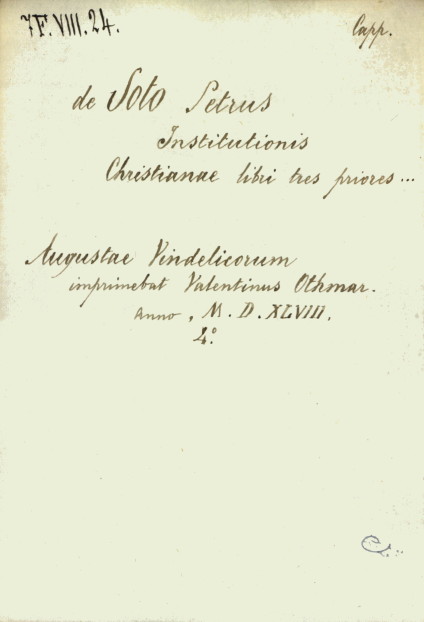 7F.VIII.24.
Capp.
de Soto Petrus
Institutionis
Christianae libri tres priores...
Augustae Vindelicorum
imprimebat Valentinus Othmar.
Anno, M. D. XLVIII.
4°